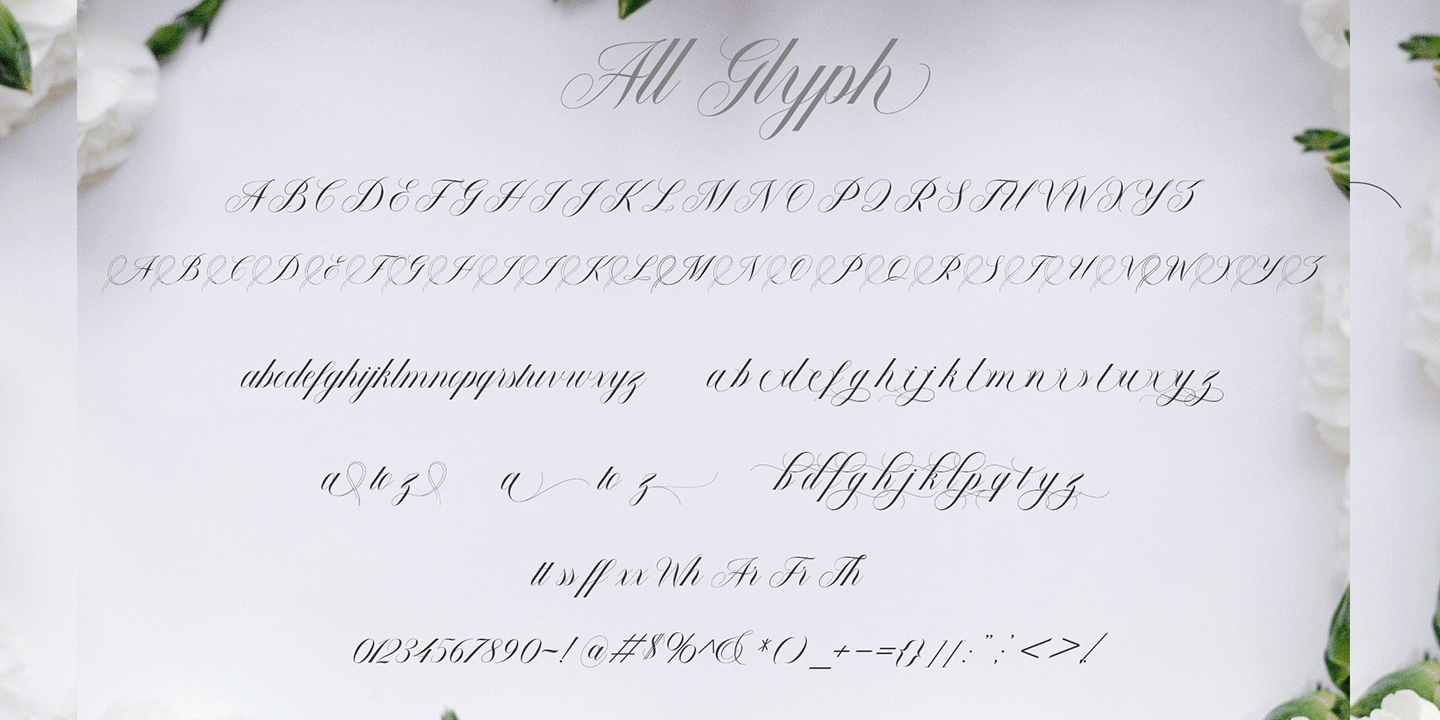 All Glyph
A B C D E F G H I J K L M N O P Q R S T U V W X Y Z
A B C D E F G H I J K L M N O P Q R S T U V W X Y Z
abcdefghijklmnopqrstuvwxyz a b c d e f g h i j k l m n r s t u x y z
a to z a to z b d f g h j k l p q t y z
tt ss ff xx Wh Ar Fr Th
01234567890~!@#$%^&*()_+-={}|[:";'<>/